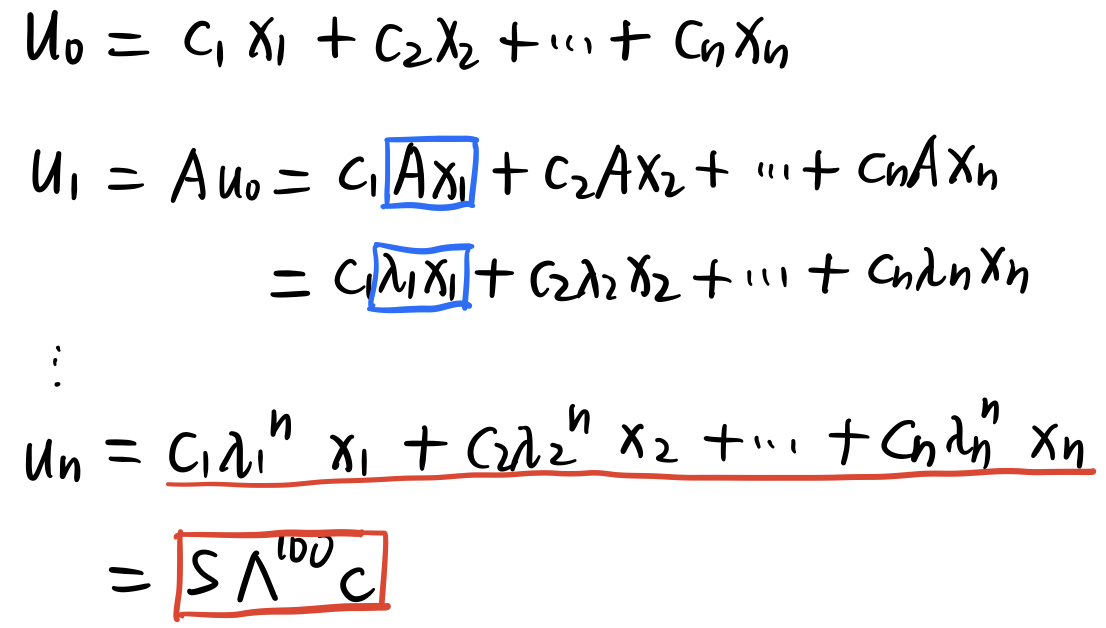 u₀ = c₁ x₁ + c₂x₂ + ... + cₙxₙ
u₁ = Au₀ = c₁Ax₁ + c₂Ax₂ + ... + cₙAxₙ
= c₁λ₁x₁ + c₂λ₂x₂ + ... + cₙλₙxₙ
⋮
uₙ = c₁λ₁ⁿ x₁ + c₂λ₂ⁿ x₂ + ... + cₙλₙⁿ xₙ
= SΛ¹⁰⁰c